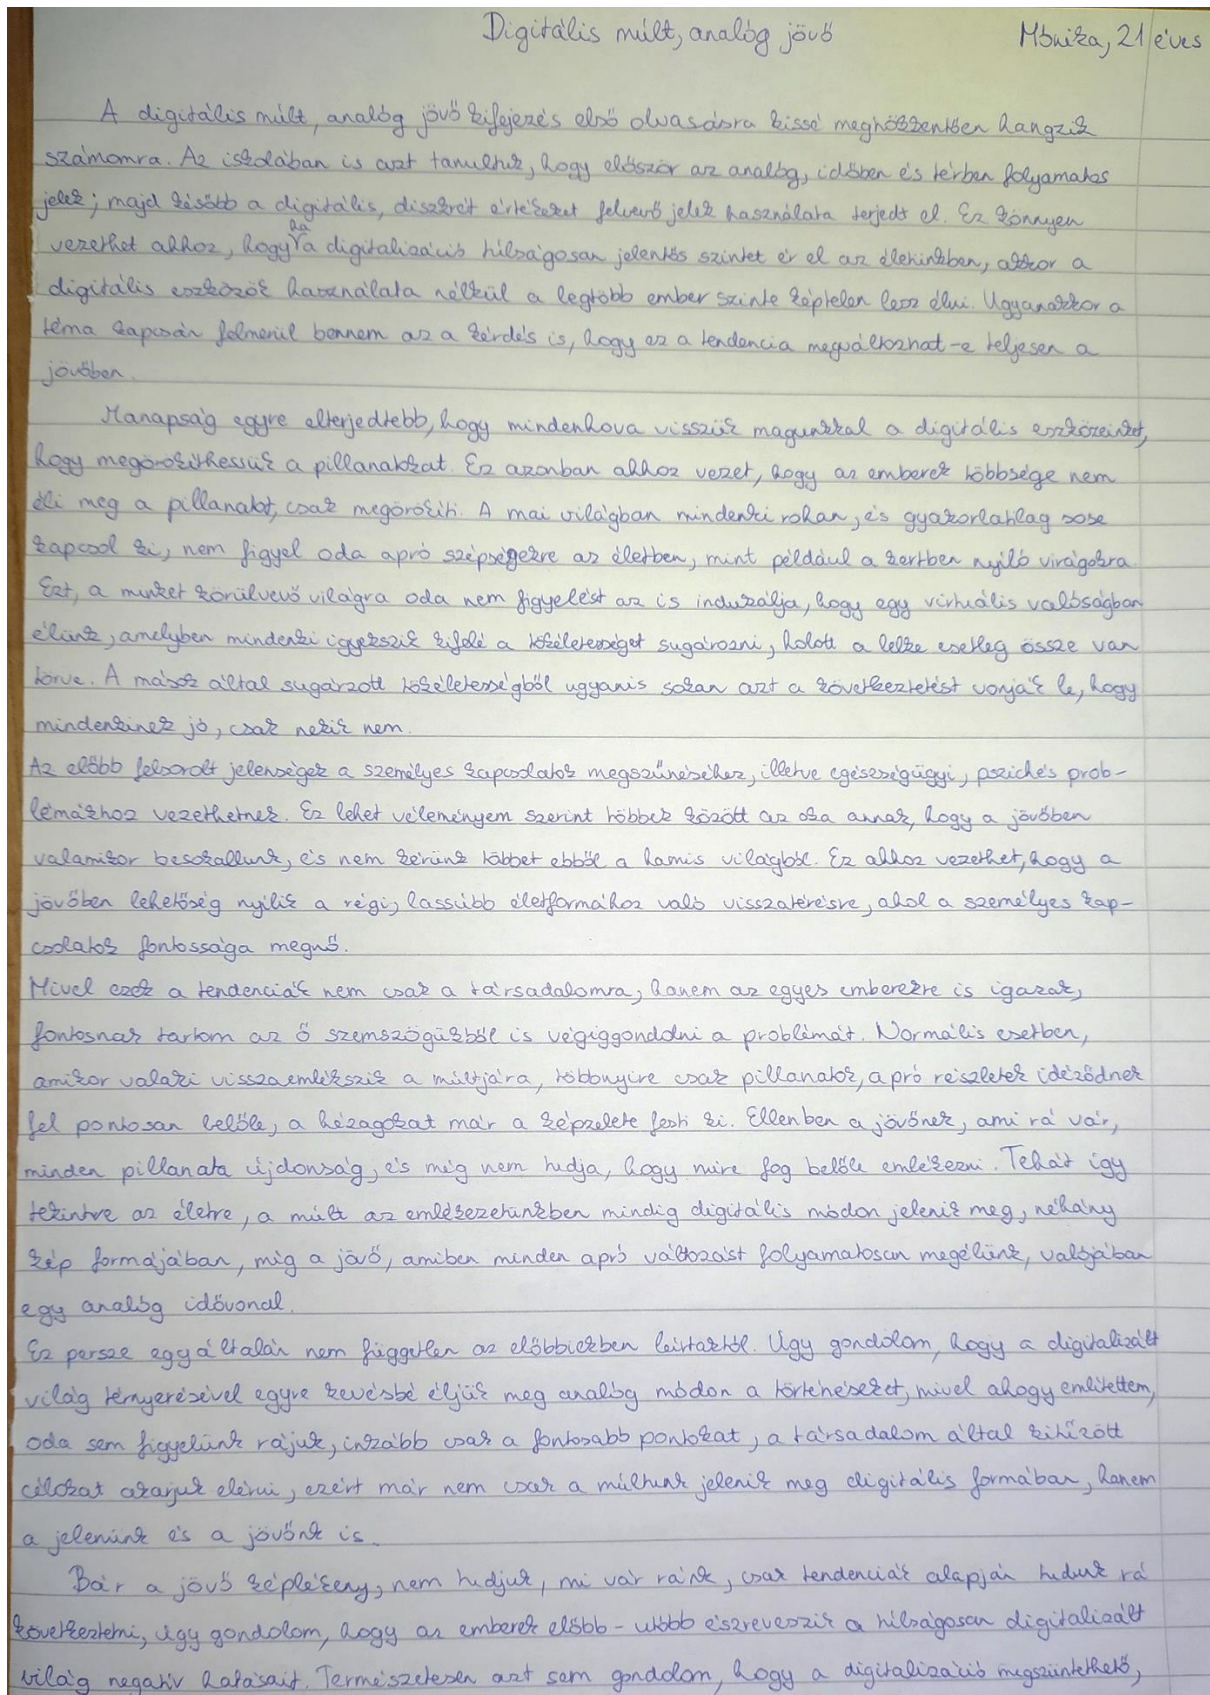 Digitális múlt, analóg jövő
Mónika, 21 éves
A digitális múlt, analóg jövő kifejezés első olvasásra kissé meghökkentően hangzik
számomra. Az iskolában is azt tanultuk, hogy először az analóg, időben és térben folyamatos
jelek; majd később a digitális, diszkrét értékeket felvevő jelek használata terjedt el. Ez könnyen
vezethet ahhoz, hogy ha a digitalizáció túlságosan jelentős szintet ér el az életünkben, akkor a
digitális eszközök használata nélkül a legtöbb ember szinte képtelen lesz élni. Ugyanakkor a
téma kapcsán felmerül bennem az a kérdés is, hogy ez a tendencia megváltozhat-e teljesen a
jövőben.
Manapság egyre elterjedtebb, hogy mindenhova visszük magunkkal a digitális eszközeinket,
hogy megörökíthessük a pillanatokat. Ez azonban ahhoz vezet, hogy az emberek többsége nem
éli meg a pillanatot, csak megörökíti. A mai világban mindenki rohan, és gyakorlatilag sose
kapcsol ki, nem figyel oda apró szépségekre az életben, mint például a kertben nyíló virágokra.
Ezt, a minket körülvevő világra oda nem figyelést az is indukálja, hogy egy virtuális valóságban
élünk, amelyben mindenki igyekszik kifelé a tökéletességet sugározni, holott a lelke esetleg össze van
törve. A mások által sugárzott tökéletességből ugyanis sokan azt a következtetést vonják le, hogy
mindenkinek jó, csak nekik nem.
Az előbb felsorolt jelenségek a személyes kapcsolatok megszűnéséhez, illetve egészségügyi, pszichés prob-
lémákhoz vezethetnek. Ez lehet véleményem szerint többek között az oka annak, hogy a jövőben
valamikor besokallunk, és nem kérünk többet ebből a hamis világból. Ez ahhoz vezethet, hogy a
jövőben lehetőség nyílik a régi, lassúbb életformához való visszatérésre, ahol a személyes kap-
csolatok fontossága megnő.
Mivel ezek a tendenciák nem csak a társadalomra, hanem az egyes emberekre is igazak,
fontosnak tartom az ő szemszögükből is végiggondolni a problémát. Normális esetben,
amikor valaki visszaemlékszik a múltjára, többnyire csak pillanatok, apró részletek idéződnek
fel pontosan belőle, a hézagokat már a képzelete festi ki. Ellenben a jövőnek, ami rá vár,
minden pillanata újdonság, és még nem tudja, hogy mire fog belőle emlékezni. Tehát így
tekintve az életre, a múlt az emlékezetünkben mindig digitális módon jelenik meg, néhány
kép formájában, míg a jövő, amiben minden apró változást folyamatosan megélünk, valójában
egy analóg idővonal.
Ez persze egyáltalán nem független az előbbiekben leírtaktól. Úgy gondolom, hogy a digitalizált
világ térnyerésével egyre kevésbé éljük meg analóg módon a történéseket, mivel ahogy említettem,
oda sem figyelünk rájuk, inkább csak a fontosabb pontokat, a társadalom által kitűzött
célokat akarjuk elérni, ezért már nem csak a múltunk jelenik meg digitális formában, hanem
a jelenünk és a jövőnk is.
Bár a jövő képlékeny, nem tudjuk, mi vár ránk, csak tendenciák alapján tudunk rá
következtetni, úgy gondolom, hogy az emberek előbb-utóbb észreveszik a túlságosan digitalizált
világ negatív hatásait. Természetesen azt sem gondolom, hogy a digitalizáció megszüntethető,